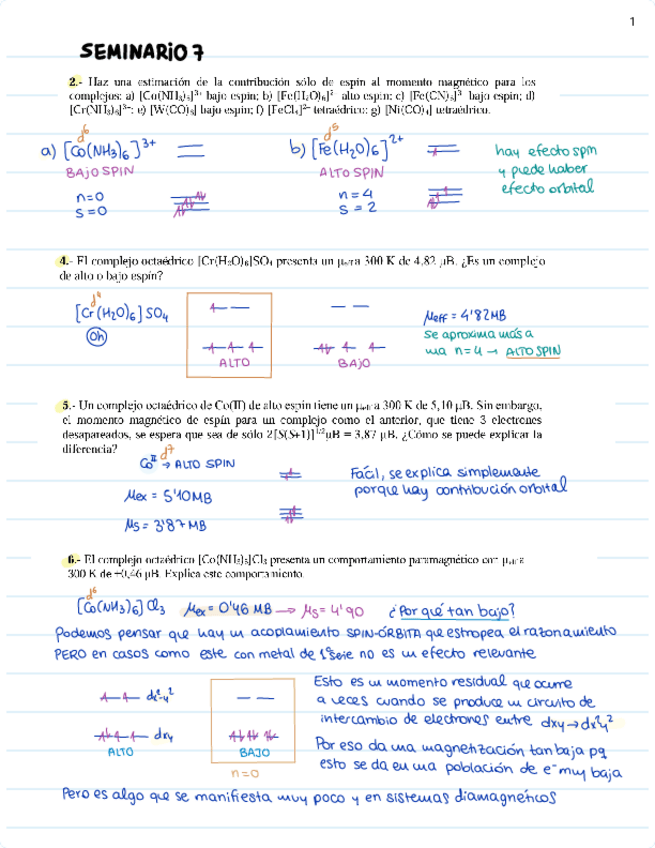 1
SEMINARIO 7
2.- Haz una estimación de la contribución sólo de espin al momento magnético para los
complejos: a) [Co(NH₃)₆]³⁺ bajo espin; b) [Fe(H₂O)₆]² alto espin; c) [Fe(CN)₆]³⁻ bajo espin; d)
[Cr(NH₃)₆]³⁺; e) [W(CO)₆] bajo espin; f) [FeCl₄]²⁻ tetraédrico; g) [Ni(CO)₄] tetraédrico.
d⁶
a) [Co(NH3)6]³⁺
BAJO SPIN
n=0
S=0
d⁵
b) [Fe(H2O)6]²⁺
ALTO SPIN
n=4
S=2
hay efecto spin
y puede haber
efecto orbital
4.- El complejo octaédrico [Cr(H₂O)₆]SO₄ presenta un μeff a 300 K de 4,82 μB. ¿Es un complejo
de alto o bajo espín?
d⁴
[Cr(H2O)6]SO4
Oh
ALTO
BAJO
μeff = 4'82MB
Se aproxima más a
una n=4 → ALTO SPIN
5.- Un complejo octaédrico de Co(II) de alto espin tiene un μeff a 300 K de 5,10 μB. Sin embargo,
el momento magnético de espín para un complejo como el anterior, que tiene 3 electrones
desapareados, se espera que sea de sólo 2[S(S+1)]¹/²μB = 3,87 μB. ¿Cómo se puede explicar la
diferencia?
d⁷
Co^II → ALTO SPIN
μex = 5'10MB
μs = 3'87MB
Fácil, se explica simplemente
porque hay contribución orbital
6.- El complejo octaédrico [Co(NH₃)₆]Cl₃ presenta un comportamiento paramagnético con μeff a
300 K de 0,46 μB. Explica este comportamiento.
d⁶
[Co(NH3)6]Cl3 μex = 0'46 MB → μs = 4'90 ¿Por qué tan bajo?
Podemos pensar que hay un acoplamiento SPIN-ÓRBITA que estropea el razonamiento
PERO en casos como este con metal de 1ª Serie no es un efecto relevante
dx²-y²
dxy
ALTO
BAJO
n=0
Esto es un momento residual que ocurre
a veces cuando se produce un circuito de
intercambio de electrones entre dxy→dx²y²
Por eso da una magnetización tan baja pq
esto se da en una población de e⁻ muy baja
Pero es algo que se manifiesta muy poco y en sistemas diamagnéticos